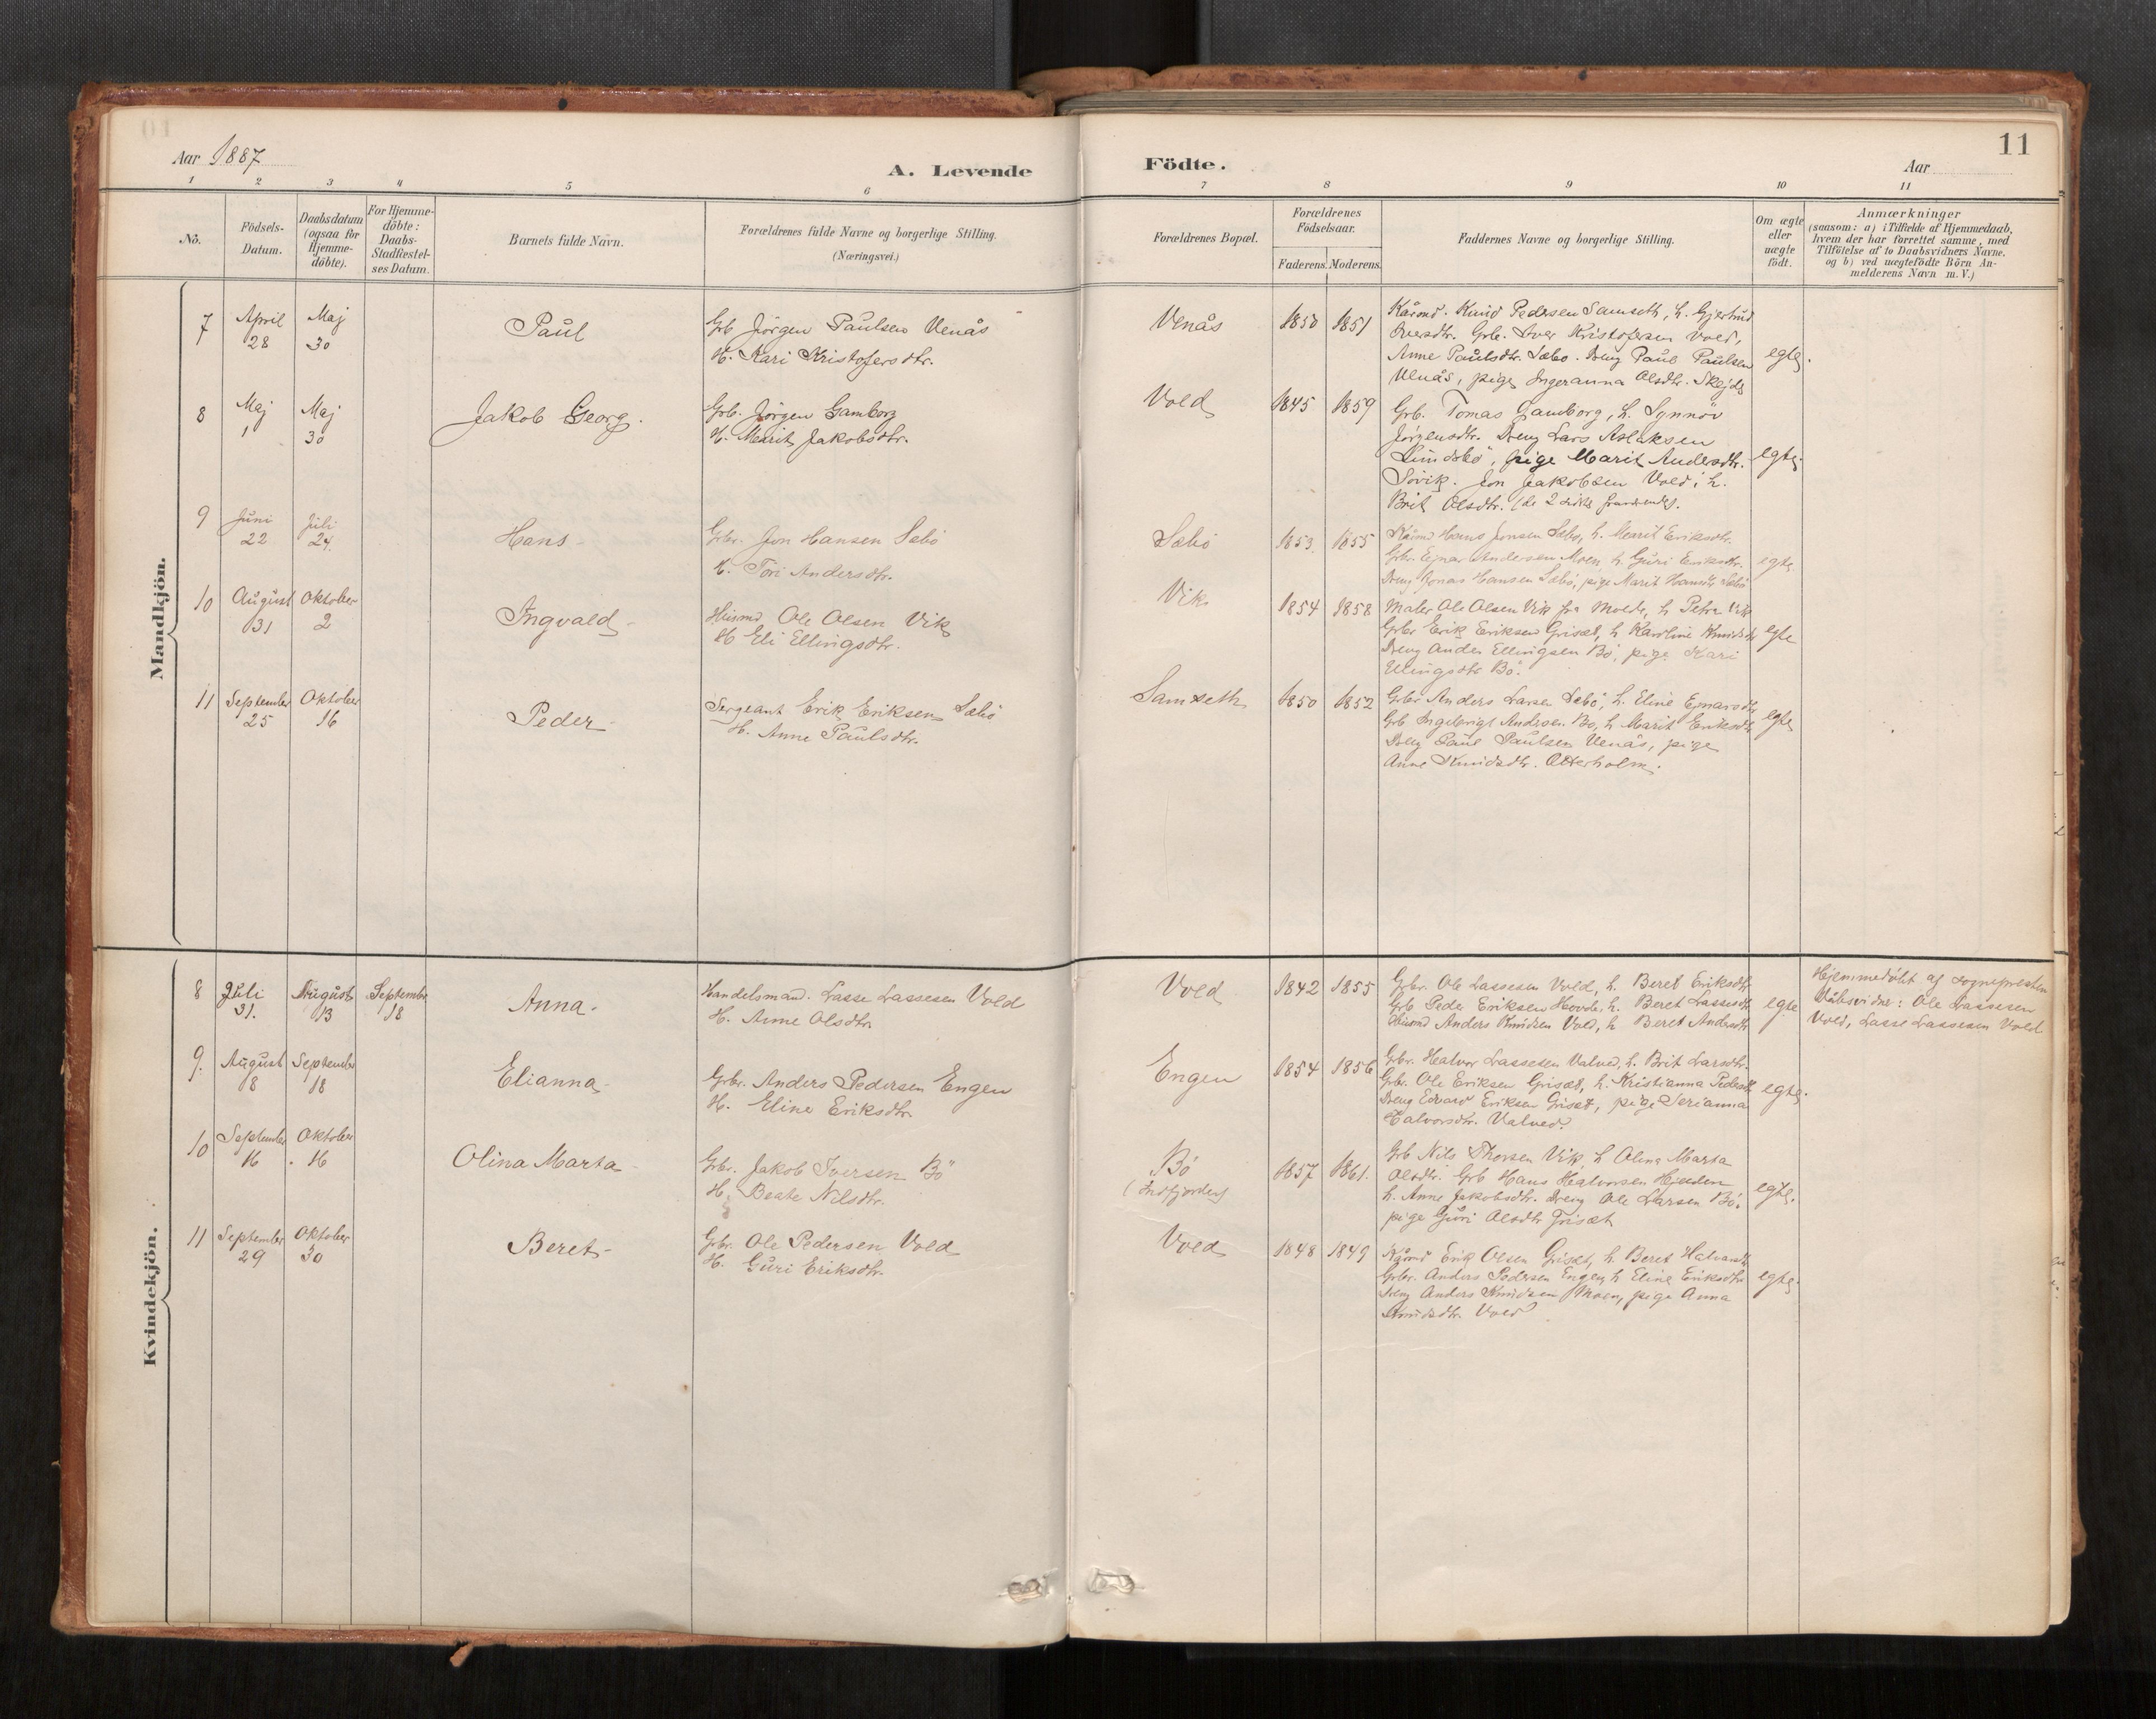 11
Aar 1887
A. Levende Födte.
Aar
1 2 3 4 5 6 7 8 9 10 11
No.
Födsels-
Datum.
Daabsdatum
(ogsaa for
Hjemme-
döbte).
For Hjemme-
döbte:
Daabs-
Stadfæstel-
ses Datum.
Barnets fulde Navn.
Forældrenes fulde Navne og borgerlige Stilling.
(Næringsvei.)
Forældrenes Bopæl.
Forældrenes
Födselsaar.
Faderens. Moderens.
Faddernes Navne og borgerlige Stilling.
Om ægte
eller
uægte
födt.
Anmærkninger
(saasom: a) i Tilfælde af Hjemmedaab,
hvem der har forrettet samme, med
Tilföielse af to Daabsvidners Navne,
og b) ved uægtefödte Börn An-
melderens Navn m. V.)
Mandkjön.
7 April 28 Maj 30 Paul
Grb. Jörgen Paulsen Venås
H. Kari Kristofersdtr.
Venås 1850 1851
Kårmd. Knud Pedersen Samseth, h. Gjertrud
Iversdtr. Grb. Iver Kristofersen Vold,
Anne Paulsdtr. Sæbö. Dreng Paul Paulsen
Venås, pige Ingeranna Olsdtr.
egte.
8 Maj 1 Maj 30 Jakob Georg.
Grb. Jörgen Gamborg
H. Marit Jakobsdtr.
Vold 1845 1859
Grb. Tomas Gamborg, h. Synnöv
Jörgensdtr. Dreng Lars Aslaksen
pige Marit Andersdtr.
Sövik. Jon Jakobsen Vold, h.
Brit Olsdtr. (de 2 sidste
egte.
9 Juni 22 Juli 24. Hans
Grbr. Jon Hansen Sæbö
H. Tori Andersdtr.
Sæbö 1853 1855
Kårmd Hans Jonsen Sæbö, h. Marit Eriksdtr.
Grbr. Ejnar Andersen Moen, h. Guri Eriksdtr.
Dreng Jonas Hansen Sæbö, pige Marit Sæbö
egte
10 August 31 Oktober 2 Ingvald
Husmd Ole Olsen Vik
H. Eli Ellingsdtr.
Vik 1854 1858
Maler Ole Olsen Vik fra Molde, h. Petra Vik
Grbr Erik Eriksen Grisæt, h. Karoline
Dreng Anders Ellingsen Bö, pige Kari
Ellingsdtr Bö.
egte
11 September 25 Oktober 16 Peder
Sergeant Erik Eriksen Sæbö
H. Anne Paulsdtr.
Samseth 1850 1852
Grbr Anders Larsen Sæbö, h. Eline Ejnarsdtr
Grb Ingebrigt Andersen Bö, h. Marit Eriksdtr
Dreng Paul Paulsen Venås, pige
Anne Knudsdtr. Otterholm.
egte
Kvindekjön.
8 Juli 31. August 13 September 18 Anna
Handelsmand. Lasse Lassesen Vold
H. Anne Olsdtr
Vold 1842 1855
Grbr. Ole Lassesen Vold, h. Beret Eriksdtr
Grb Peder Eriksen Hovde, h. Beret Lassesdtr
Husmd Anders Knudsen Vold, h Beret Andersdtr
egte
Hjemmedöbt af sognepresten
Dåbsvidner: Ole Lassesen
Vold, Lasse Lassesen Vold
9. August 8 September 18 Elianna
Grbr. Anders Pedersen Engen
H. Eline Eriksdtr
Engen 1854 1856
Grbr. Halvor Lassesen Valved, h. Brit Larsdtr.
Grbr. Ole Eriksen Grisæt, h. Kristianna Pedersdtr
Dreng Edvard Eriksen Grisæt, pige Serianna
Halvorsdtr. Valved.
egte.
10 September 16 Oktober 16 Olina Marta
Grbr. Jakob Iversen Bö
H. Beate Nilsdtr.
Bö (Indfjorden) 1857 1861.
Grb Nils Thorsen Vik, h. Olina Marta
Olsdtr. Grb Hans Halvorsen
h. Anne Jakobsdtr. Dreng Ole Larsen Bö.
pige Guri Olsdtr Grisæt
egte.
11 September 29 Oktober 30 Beret
Grbr. Ole Pedersen Vold
H. Guri Eriksdtr.
Vold 1848 1849
Kårmd Erik Olsen Grisæt, h. Beret Halvorsdtr
Grbr. Anders Pedersen Engen, h Eline Eriksdtr
Dreng Anders Knudsen Moen, pige Anna
Knudsdtr. Vold
egte.